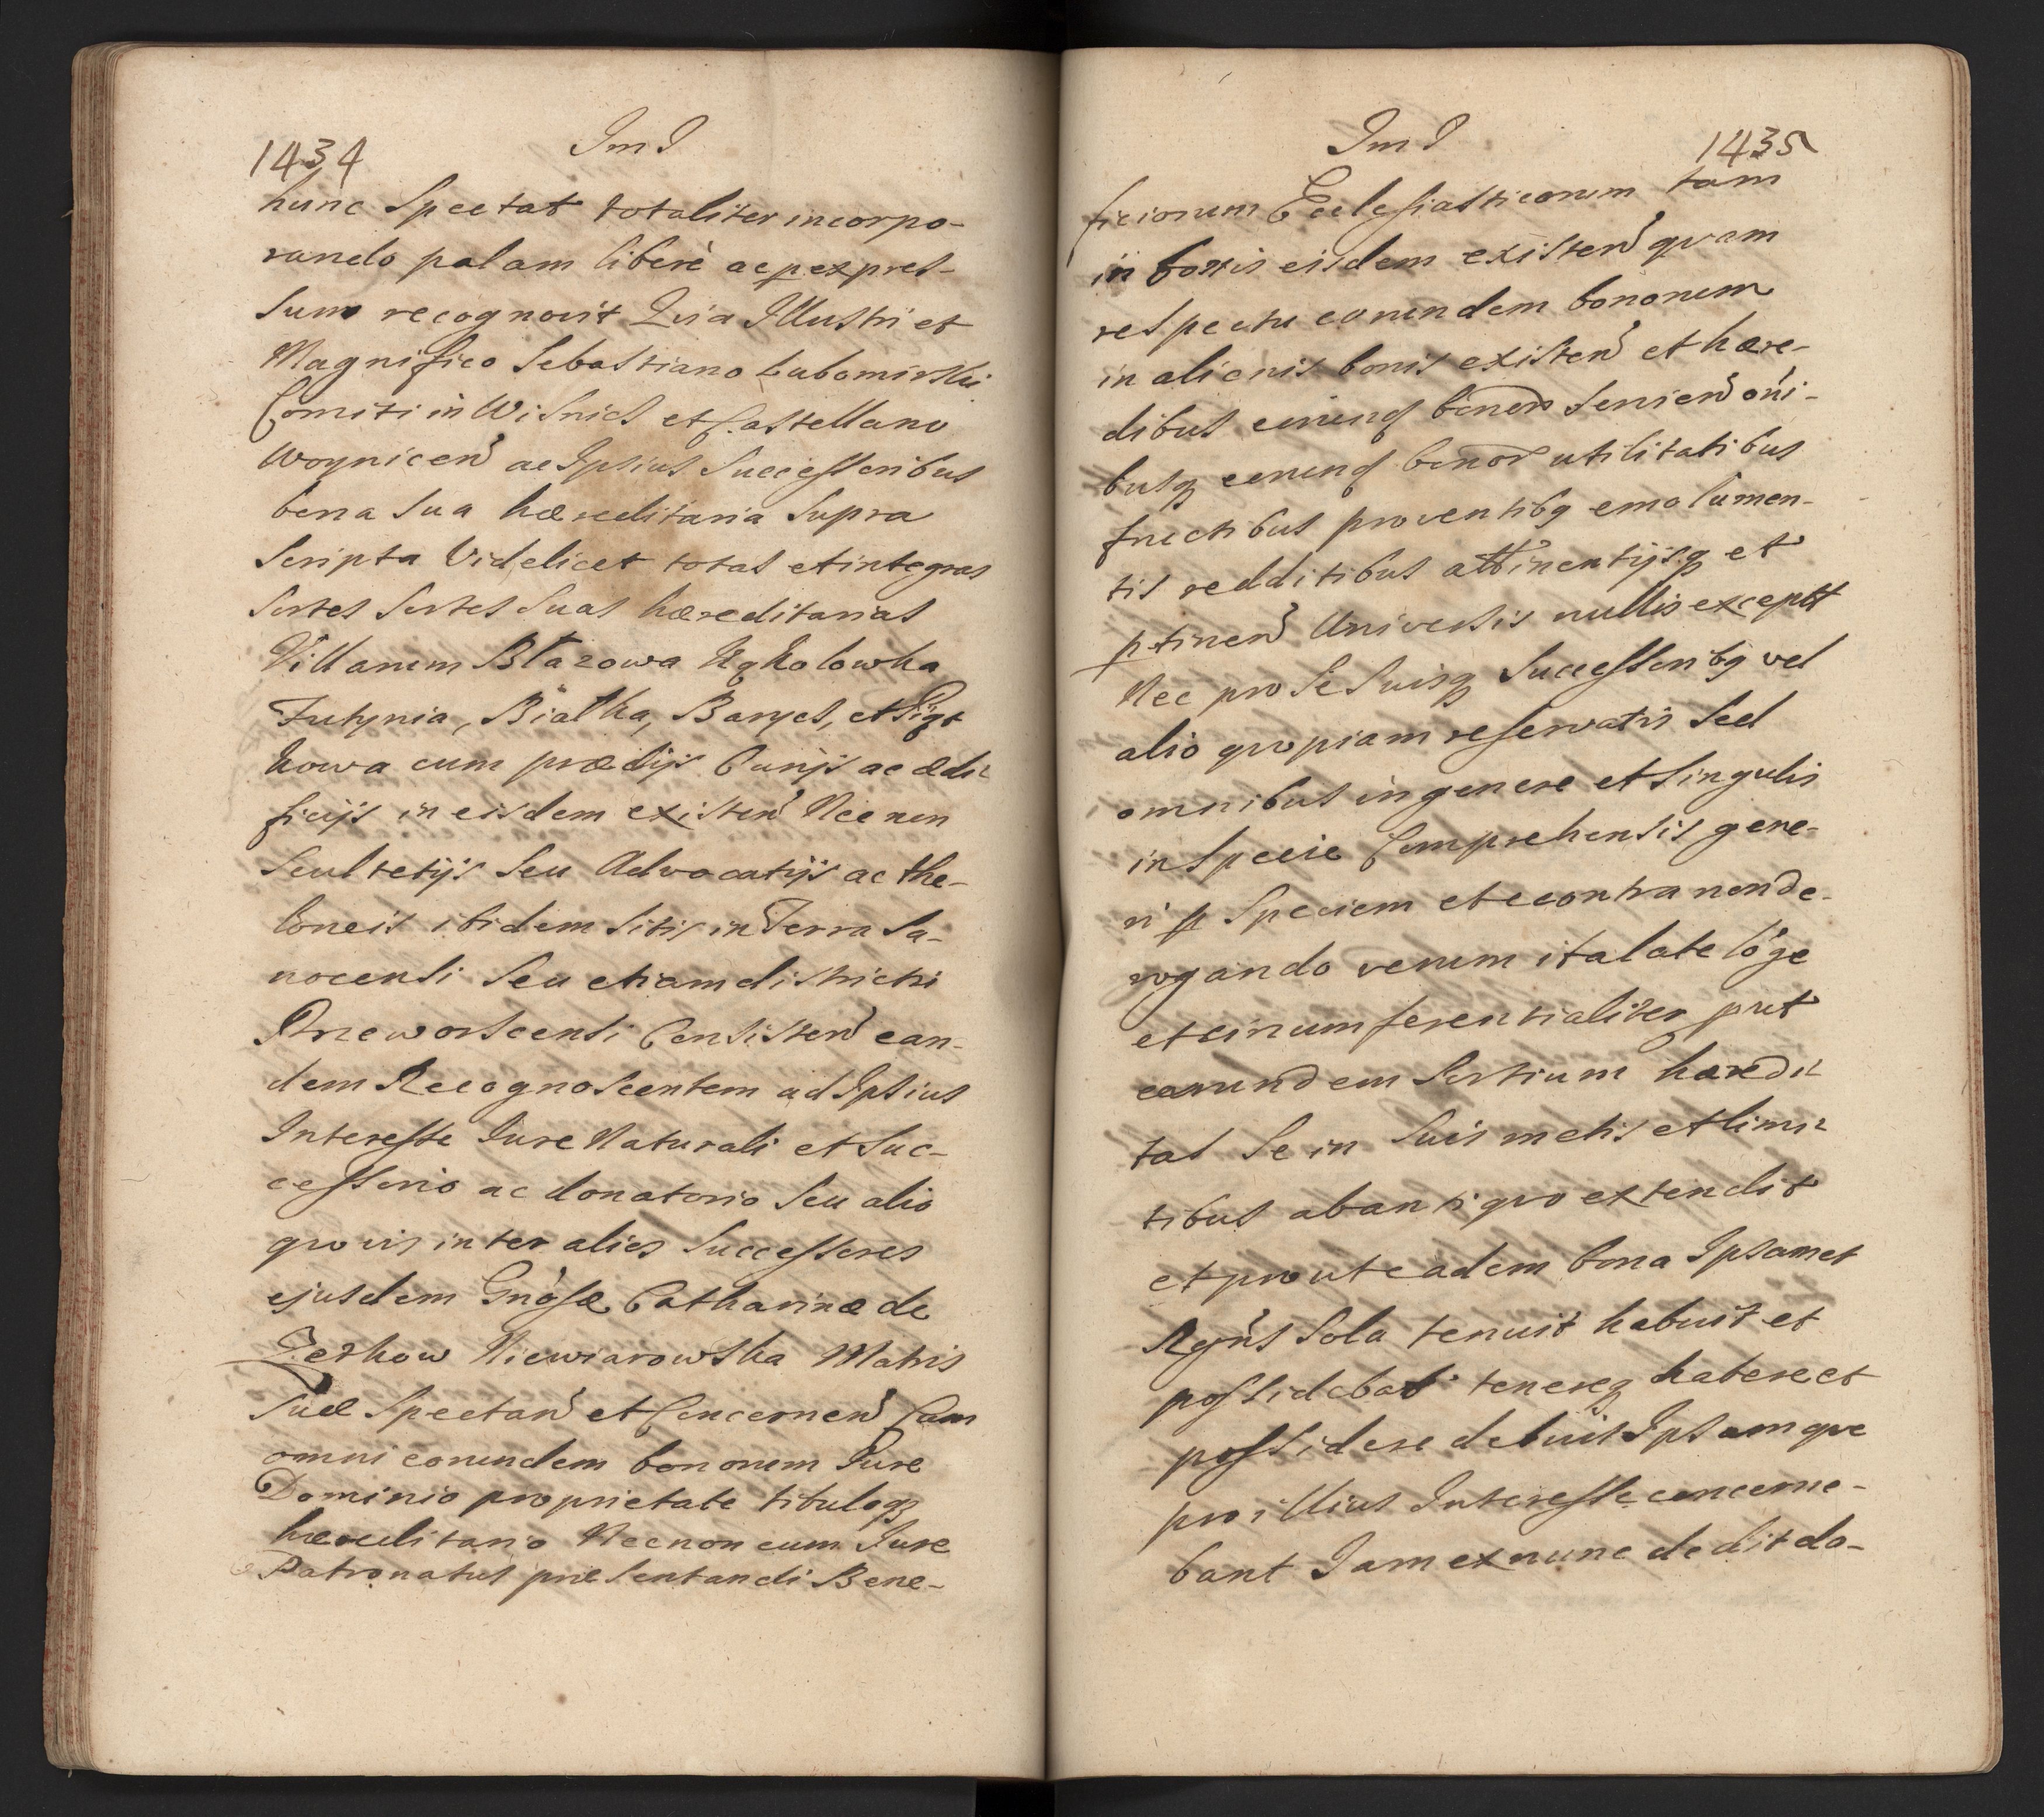 1434 Jmd
hunc Spectat totaliter incorpo-
rando palam liberè ac p expres-
sum recognovit Quia Illustri et
Magnifico Sebastiano Lubomirski
Comiti in Wisnicz et Castellano
Woynicen̄ ac Ipsius Successoribus
bona Sua hæreditaria Supra
Scripta Videlicet totas et integras
Sortes Sortes Suas hæreditarias
Villarum Błazowa Kąkolowka
Futynia, Białka, Barycs, et Piąt
kowa cum prædijs Curijs ac ædi-
ficijs in eisdem existen̄ Nec non
Scultetijs Seu Advocatijs ac the-
loneis ibidem Sitis in Terra Sa-
nocensi Seu etiam districtu
Przeworscensi Consisten̄ ean-
dem Recognoscentem ad Ipsius
Interesse Iure Naturali et Suc-
cessorio ac donatorio Seu alio
quovis inter alios Successores
ejusdem Gnosæ Catharinæ de
Niewiarowska Matris
Suæ Spectan̄ et Concernen̄ Cum
omni eorundem bonorum Iure
Dominio proprietate tituloq
hæreditario Necnon cum Iure
Patronatus præsentandi Bene-
Jmd 1435
ficiorum Ecclesiasticorum tam
in bonis eisdem existen̄ quam
respectu eorundem bonorum
in alienis bonis existen̄ et hære-
dibus eorund bonor̄ Servien̄ oni-
busq eorund bonor̄ utilitatibus
fructibus proventibq emolumen-
tis redditibus attinentijsq et
ptinen̄ Universis nullis exceptt
Nec pro Se Suisq Successoribq vel
alio quopiam reservatis Sed
omnibus in genere et Singulis
in Specie Comprehensis gene-
ri p Speciem et econtra non de-
rogando verum ita late lõge
et circumferentialiter prut
earundem Sortium hæredi-
tas Se in Suis metis et limi-
tibus ab antiquo extendit
et prout eadem bona Ipsamet
Rgn̄s Sola tenuit habuit et
possidebat tenereq habere et
possidere debuit Ipsamque
pro illius Interesse concerne-
bant Iam ex nunc dedit do-